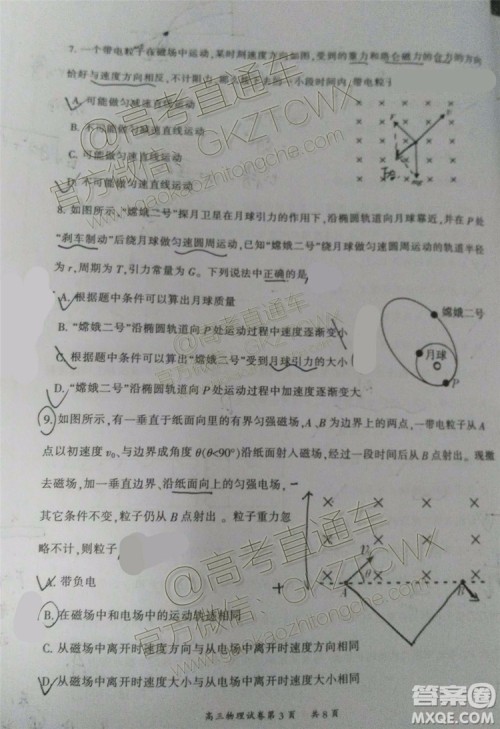 7. 一个带电粒子在磁场中运动，某时刻速度方向如图，受到的重力和洛仑磁力的合力的方向
恰好与速度方向相反，不计阻力，那么接下去的一小段时间内，带电粒子
A. 可能做匀减速直线运动
B. 不可能做匀减速直线运动
C. 可能做匀速直线运动
D. 不可能做匀速直线运动
8. 如图所示，“嫦娥二号”探月卫星在月球引力的作用下，沿椭圆轨道向月球靠近，并在P处
“刹车制动”后绕月球做匀速圆周运动，已知“嫦娥二号”绕月球做匀速圆周运动的轨道半径
为r，周期为T，引力常量为G。下列说法中正确的是
A. 根据题中条件可以算出月球质量
B. “嫦娥二号”沿椭圆轨道向P处运动过程中速度逐渐变小
C. 根据题中条件可以算出“嫦娥二号”受到月球引力的大小
D. “嫦娥二号”沿椭圆轨道向P处运动过程中速度逐渐变大
嫦娥二号
月球
P
9. 如图所示，有一垂直于纸面向里的有界匀强磁场，A、B为边界上的两点，一带电粒子从A
点以初速度v₀、与边界成角度θ(θ<90°)沿纸面射入磁场，经过一段时间后从B点射出。现撤
去磁场，加一垂直边界、沿纸面向上的匀强电场，
其它条件不变，粒子仍从B点射出。粒子重力忽
略不计，则粒子
A. 带负电
B. 在磁场中和电场中的运动轨迹相同
C. 从磁场中离开时速度方向与从电场中离开时速度方向相同
D. 从磁场中离开时速度大小与从电场中离开时速度大小相同
v₀
θ
A
B
高三物理试卷第3页 共8页
@高考直通车
官方微信：GKZTCWX
www.gaokaozhitongche.com
@高考直通车
官方微信：GKZTCWX
www.gaokaozhitongche.com
答案圈
MXQE.COM